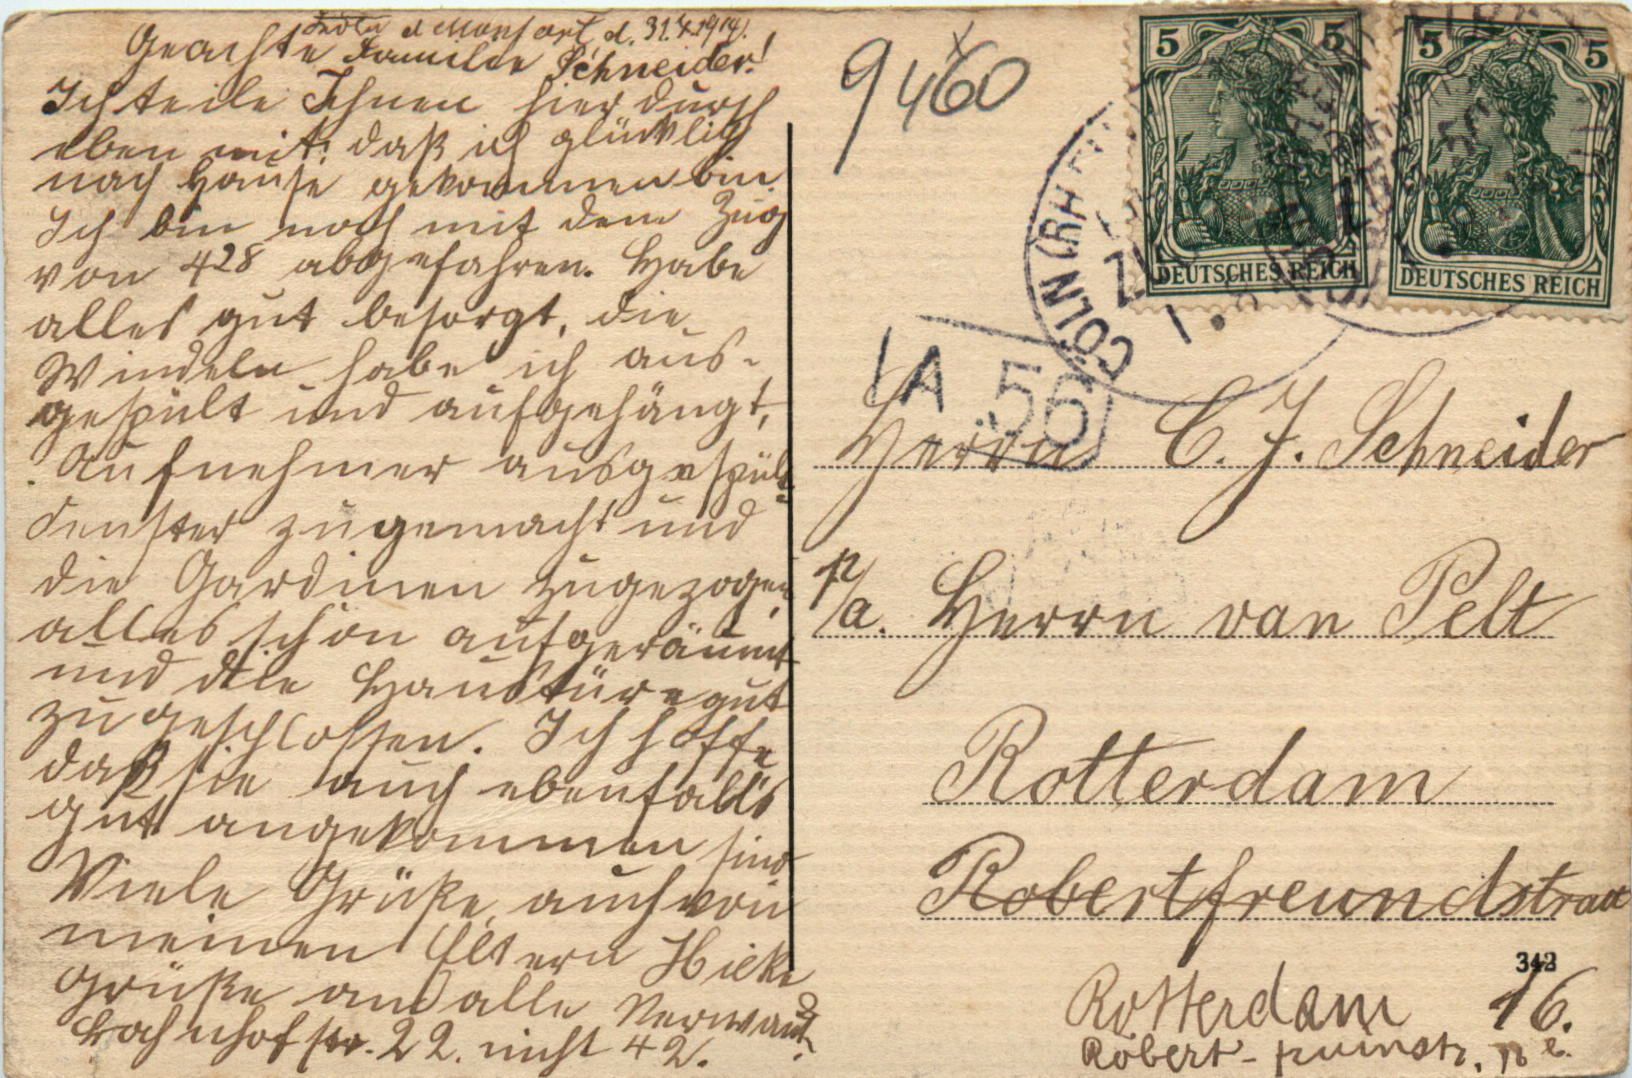 d. 31.7.1914.
Geachte Familie Schneider!
Ich teile Ihnen hierdurch
eben mit, daß ich glücklich
nach Hause gekommen bin.
Ich bin noch mit dem Zug
von 428 abgefahren. Habe
alles gut besorgt, die
Windeln habe ich aus-
gespült und aufgehängt,
Aufnehmer ausgespült
Fenster zugemacht und
die Gardinen zugezogen,
alles schön aufgeräumt
und die Haustüre gut
zugeschlossen. Ich hoffe
daß sie auch ebenfalls
gut angekommen sind
Viele Grüße, auch von
meinen Eltern
Grüße and alle Verwandt.
Bahnhofstr. 22. nicht 42.
9460
5 5
DEUTSCHES REICH
5 5
DEUTSCHES REICH
CÖLN (RHEIN
1A 56
Herrn C. J. Schneider
p/a. Herrn van Pelt
Rotterdam
Robertfreundstraat
342
16.
Rotterdam
Robert-